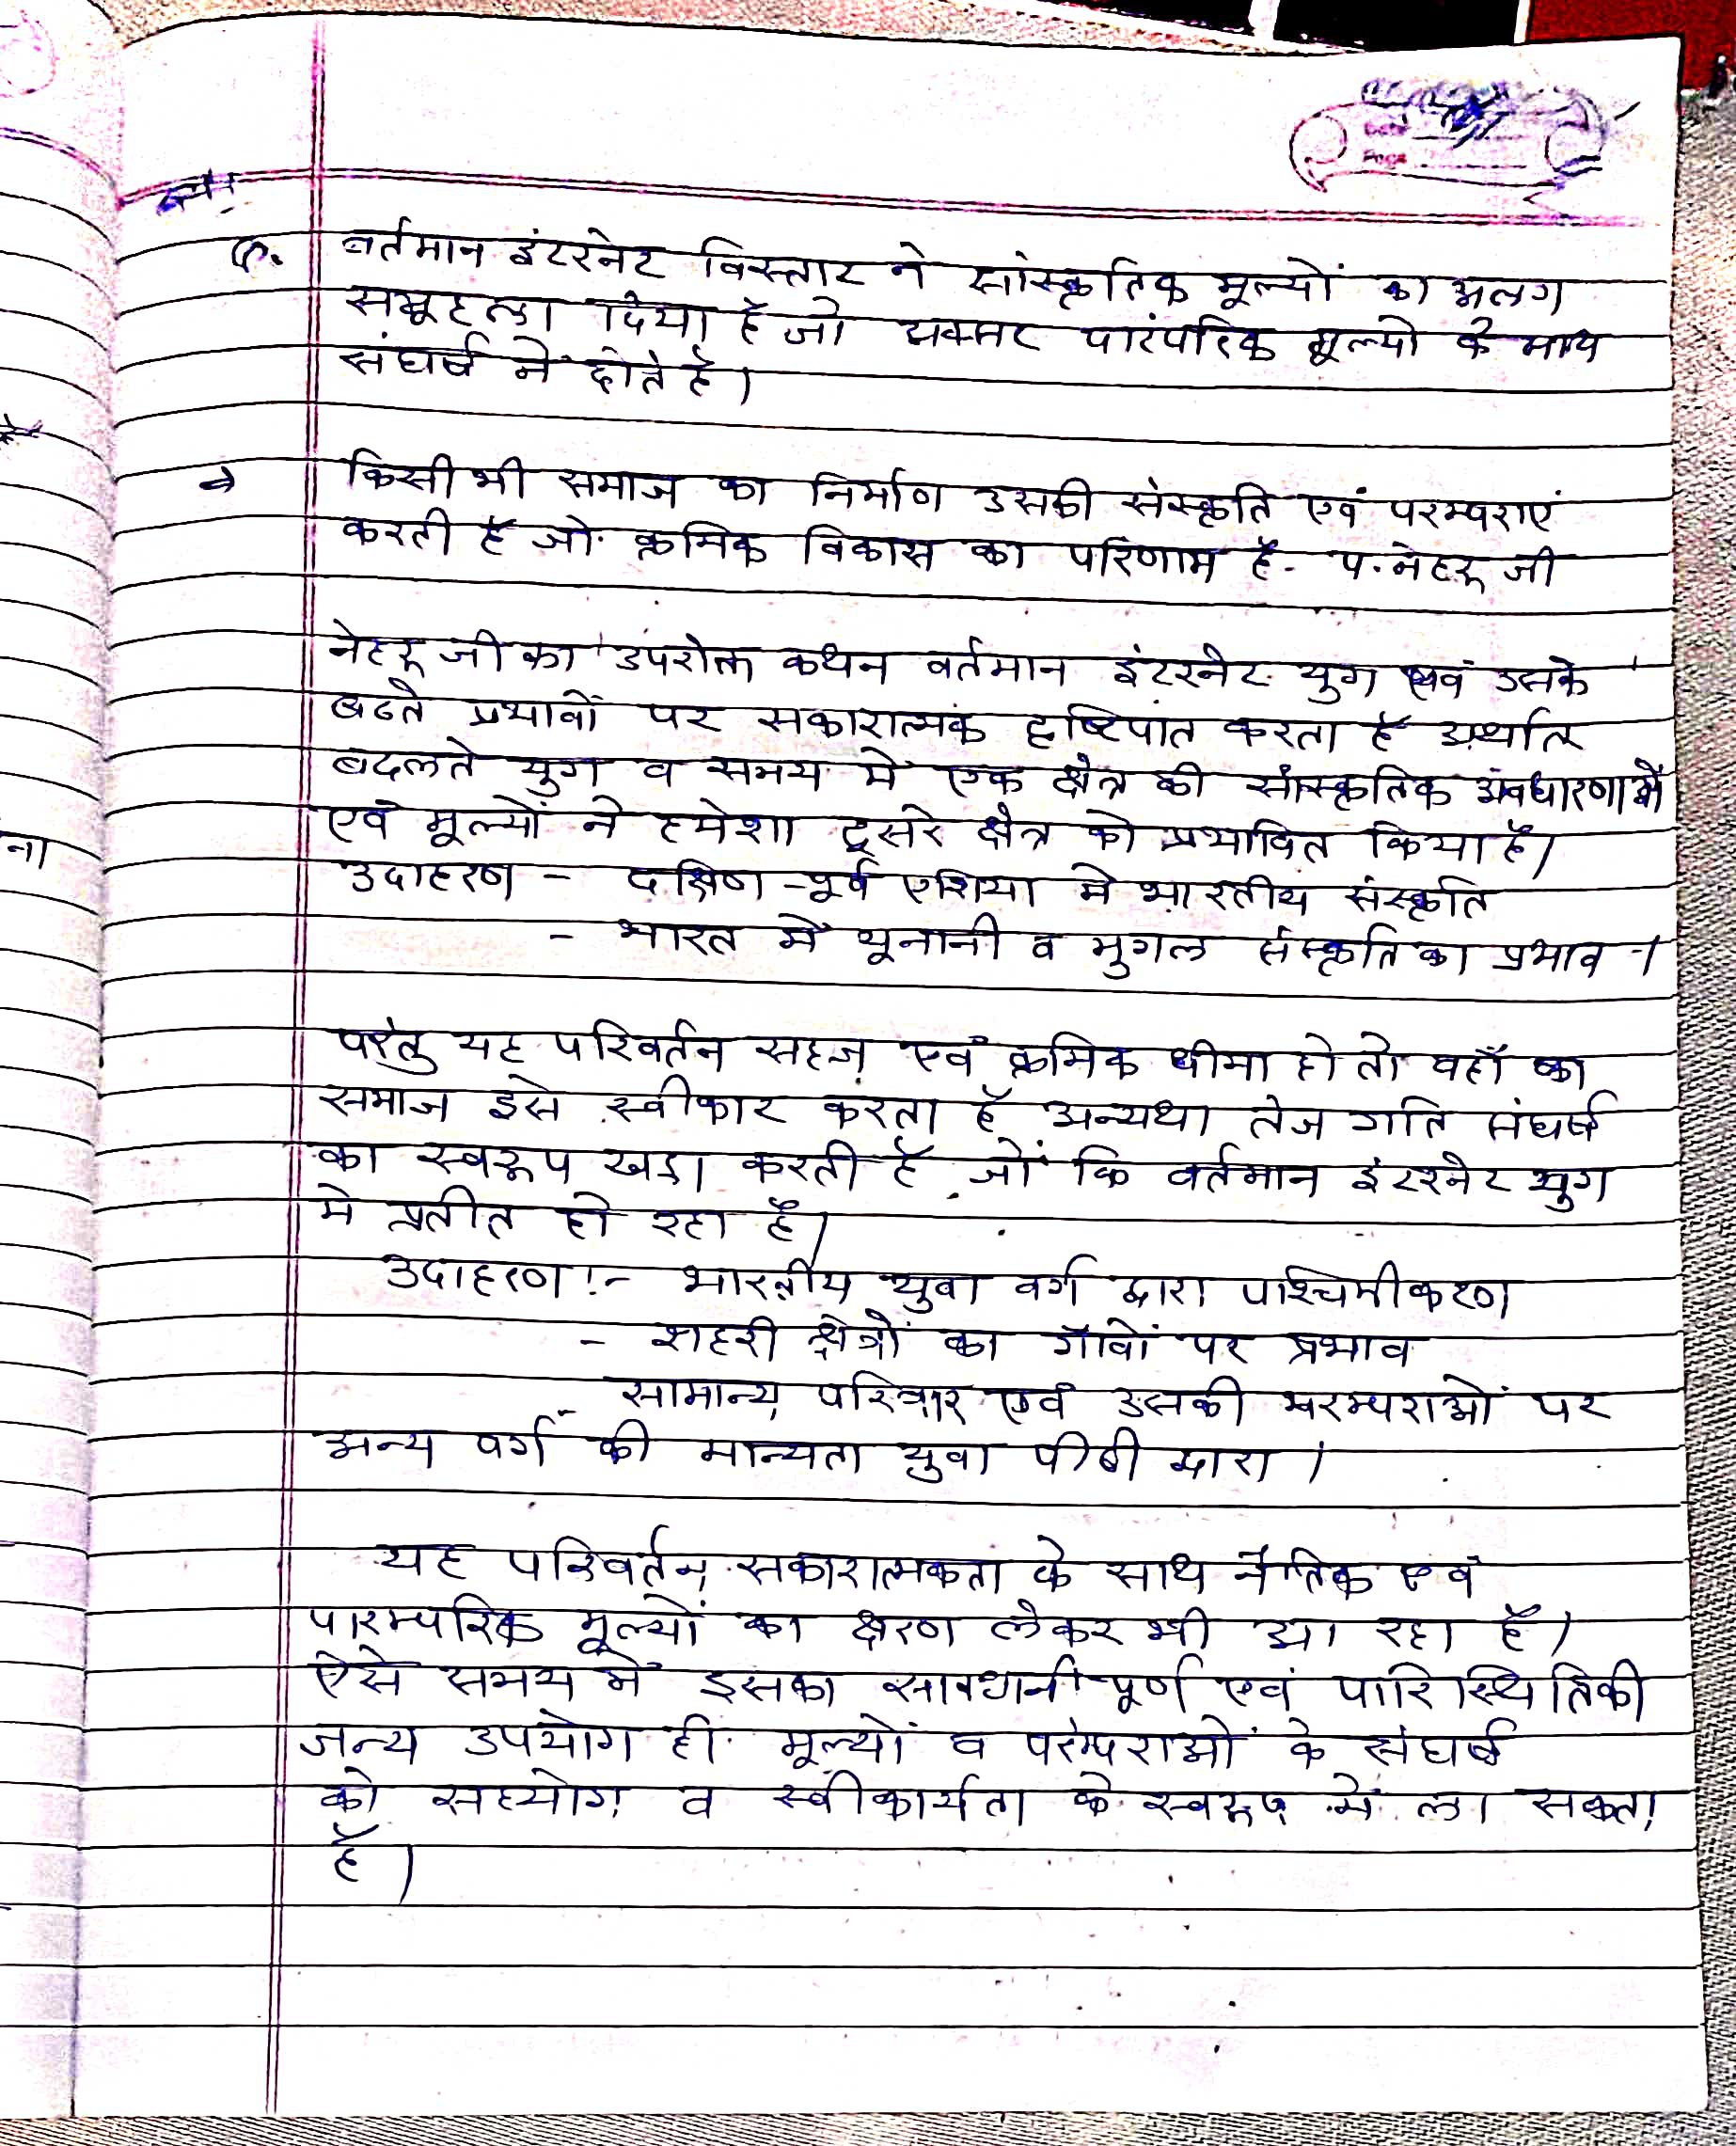 प्र. वर्तमान इंटरनेट विस्तार ने सांस्कृतिक मूल्यों का अलग
समूह ला दिया है जो अक्सर पारंपरिक मूल्यो के साथ
संघर्ष में होते है।
→ किसी भी समाज का निर्माण उसकी संस्कृति एवं परम्पराएं
करती है जो क्रमिक विकास का परिणाम है- प. नेहरू जी
नेहरू जी का उपरोक्त कथन वर्तमान इंटरनेट युग एवं उसके
बढते प्रभावों पर सकारात्मक दृष्टिपात करता है अर्थात
बदलते युग व समय मे एक क्षेत्र की सांस्कृतिक अवधारणाओं
एवं मूल्यों ने हमेशा दूसरे क्षेत्र को प्रभावित किया है।
उदाहरण - दक्षिण-पूर्व एशिया मे भारतीय संस्कृति
- भारत में यूनानी व मुगल संस्कृति का प्रभाव।
परंतु यह परिवर्तन सहज एवं क्रमिक धीमा हो तो वहाँ का
समाज इसे स्वीकार करता है अन्यथा तेज गति संघर्ष
का स्वरूप खडा करती है जो कि वर्तमान इंटरनेट युग
मे प्रतीत हो रहा है।
उदाहरण :- भारतीय युवा वर्ग द्वारा पाश्चिमीकरण
- शहरी क्षेत्रों का गाँवों पर प्रभाव
- सामान्य परिवार एवं उसकी परम्पराओं पर
अन्य वर्ग की मान्यता युवा पीढी द्वारा।
यह परिवर्तन सकारात्मकता के साथ नैतिक एवं
पारम्परिक मूल्यों का क्षरण लेकर भी आ रहा है।
ऐसे समय में इसका सावधानी पूर्ण एवं पारिस्थितिकी
जन्य उपयोग ही मूल्यों व परंम्पराओं के संघर्ष
को सहयोग व स्वीकार्यता के स्वरूप मे ला सकता
है।
ना